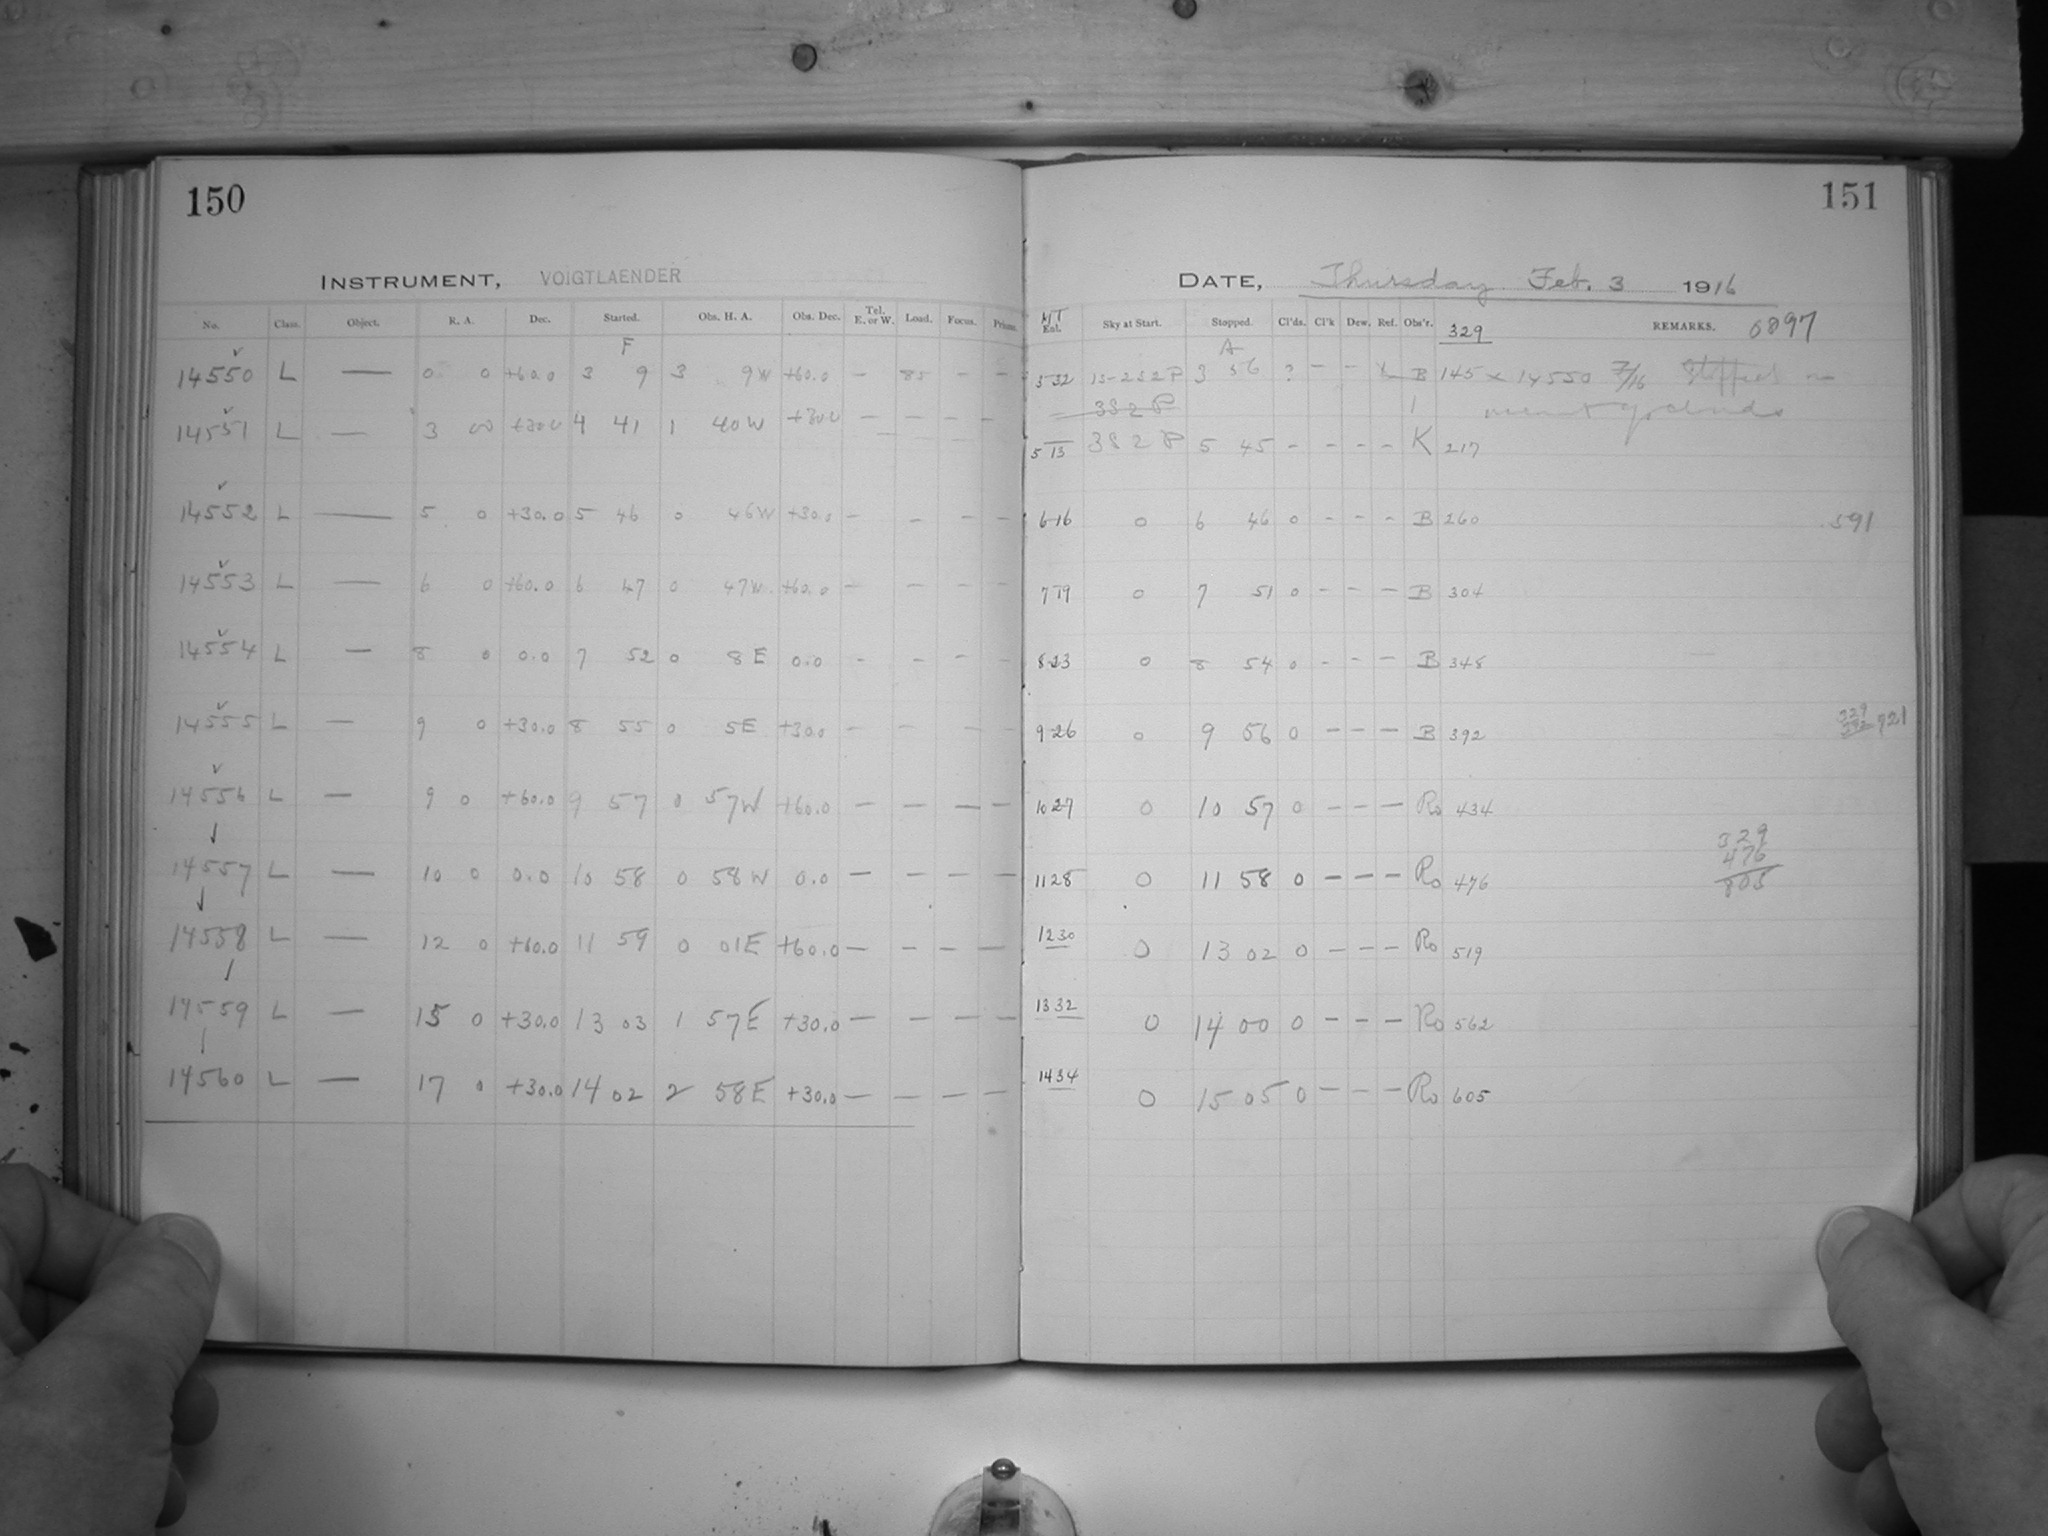 150
INSTRUMENT, VOIGTLAENDER
No. Class. Object. R. A. Dec. Started. Obs. H. A. Obs. Dec. Tel. E. or W. Load. Focus. Prisms.
F
14550 L — 0 0 +60.0 3 9 3 9W +60.0 — 85 — —
14551 L — 3 00 +30.0 4 41 1 40W +30.0 — — — —
14552 L — 5 0 +30.0 5 46 0 46W +30.0 — — — —
14553 L — 6 0 +60.0 6 47 0 47W. +60.0 — — — —
14554 L — 8 0 0.0 7 52 0 8E 0.0 — — — —
14555 L — 9 0 +30.0 8 55 0 5E +30.0 — — — —
14556 L — 9 0 +60.0 9 57 0 57W +60.0 — — — —
14557 L — 10 0 0.0 10 58 0 58W 0.0 — — — —
14558 L — 12 0 +60.0 11 59 0 01E +60.0 — — — —
14559 L — 15 0 +30.0 13 03 1 57E +30.0 — — — —
14560 L — 17 0 +30.0 14 02 2 58E +30.0 — — — —
151
DATE, Thursday Feb. 3 1916
Enl. Sky at Start. Stopped. Cl'ds. Cl'k Dew. Ref. Obs'r. 329 REMARKS. 0897
A
3 32 15-2S2P 3 56 ? — — B 145 x 14550 7/16
3S2P
5 13 3S2P 5 45 - - - - K 217
6 16 0 6 46 0 - - - B 260 591
7 19 0 7 51 0 - - - B 304
8 23 0 8 54 0 - - - B 348
9 26 0 9 56 0 - - - B 392 329 392 721
10 27 0 10 57 0 - - - Ro 434
11 28 0 11 58 0 - - - Ro 476 329 476 805
12 30 0 13 02 0 - - - Ro 519
13 32 0 14 00 0 - - - Ro 562
14 34 0 15 05 0 - - - Ro 605